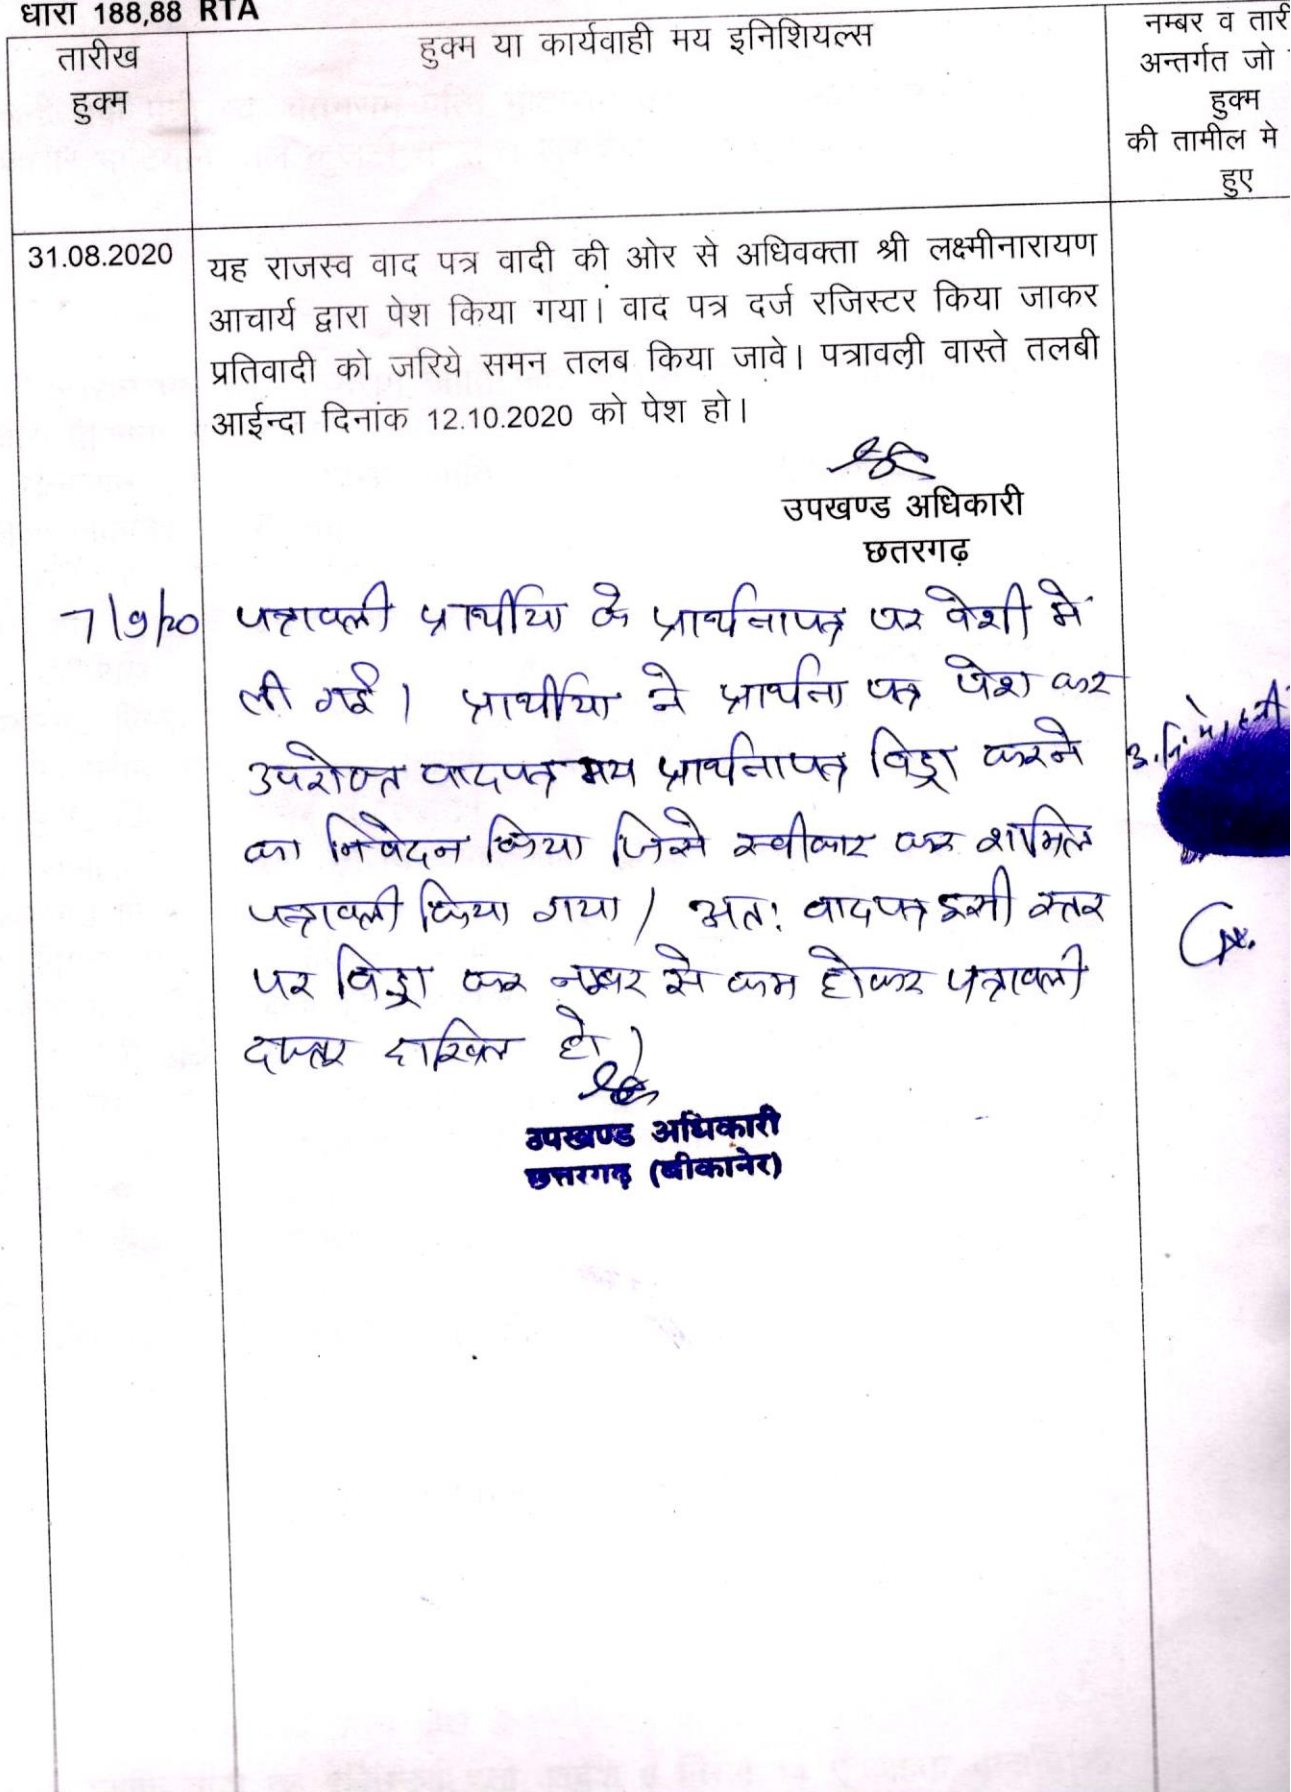 धारा 188,88 RTA
तारीख
हुक्म
हुक्म या कार्यवाही मय इनिशियल्स
नम्बर व तारी
अन्तर्गत जो
हुक्म
की तामील मे
हुए
31.08.2020
यह राजस्व वाद पत्र वादी की ओर से अधिवक्ता श्री लक्ष्मीनारायण
आचार्य द्वारा पेश किया गया। वाद पत्र दर्ज रजिस्टर किया जाकर
प्रतिवादी को जरिये समन तलब किया जावे। पत्रावली वास्ते तलबी
आईन्दा दिनांक 12.10.2020 को पेश हो।
उपखण्ड अधिकारी
छतरगढ़
7/9/20 पत्रावली प्रार्थीया के प्रार्थनापत्र पर पेशी में
ली गई। प्रार्थीया ने प्रार्थना पत्र पेश कर
उपरोक्त वादपत्र मय प्रार्थनापत्र विड्रा करने
का निवेदन किया जिसे स्वीकार कर शामिल
पत्रावली किया गया। अतः वादपत्र इसी स्तर
पर विड्रा कर नम्बर से कम होकर पत्रावली
दफ्तर दाखिल हो।
उपखण्ड अधिकारी
छत्तरगढ़ (बीकानेर)